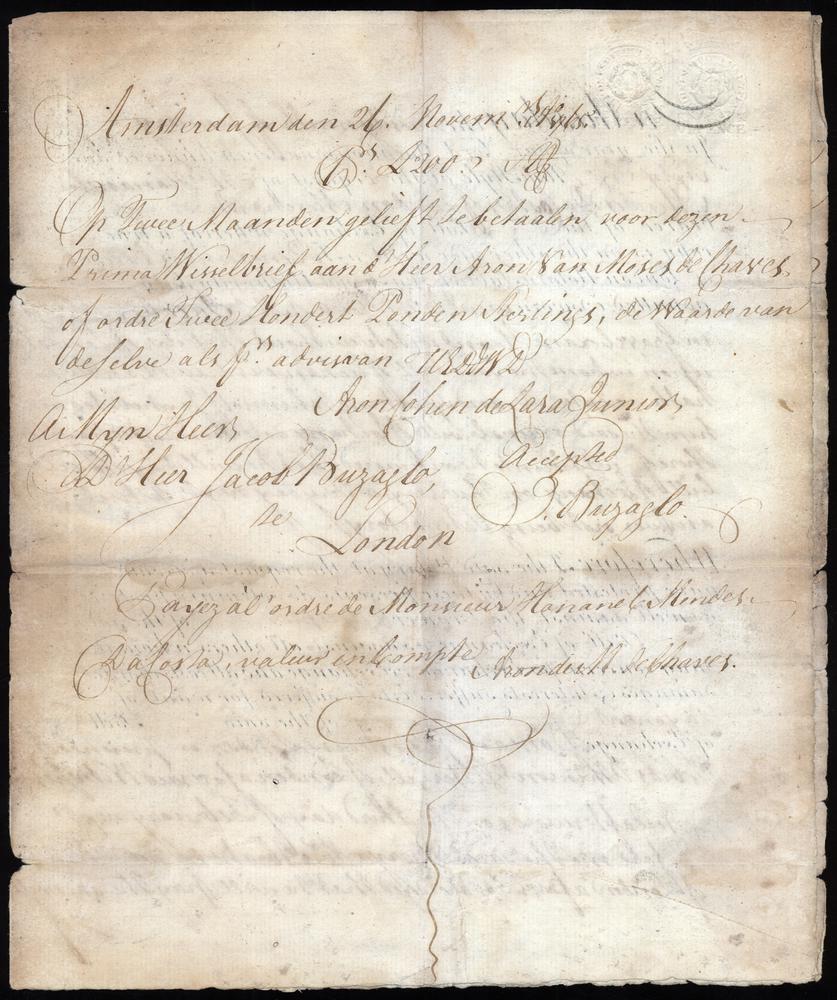 Amsterdam den 26. Novem
Prs. £ 200
Op Twee Maanden gelieft te betaalen voor dezen
Prima Wisselbrief aan d Heer Aron Van Moses de Chaves
of ordre Twee Hondert Ponden Sterlings, de Waarde van
deselve als prs advis van
Aron Cohen de Lara Junior
A Myn Heer
D Heer Jacob Buzaglo, Accepted
te J. Buzaglo.
London
Payez a l'ordre de Monsieur Hananel Mendes
Da Costa, valeur en Compte Aron de M. de Chaves.